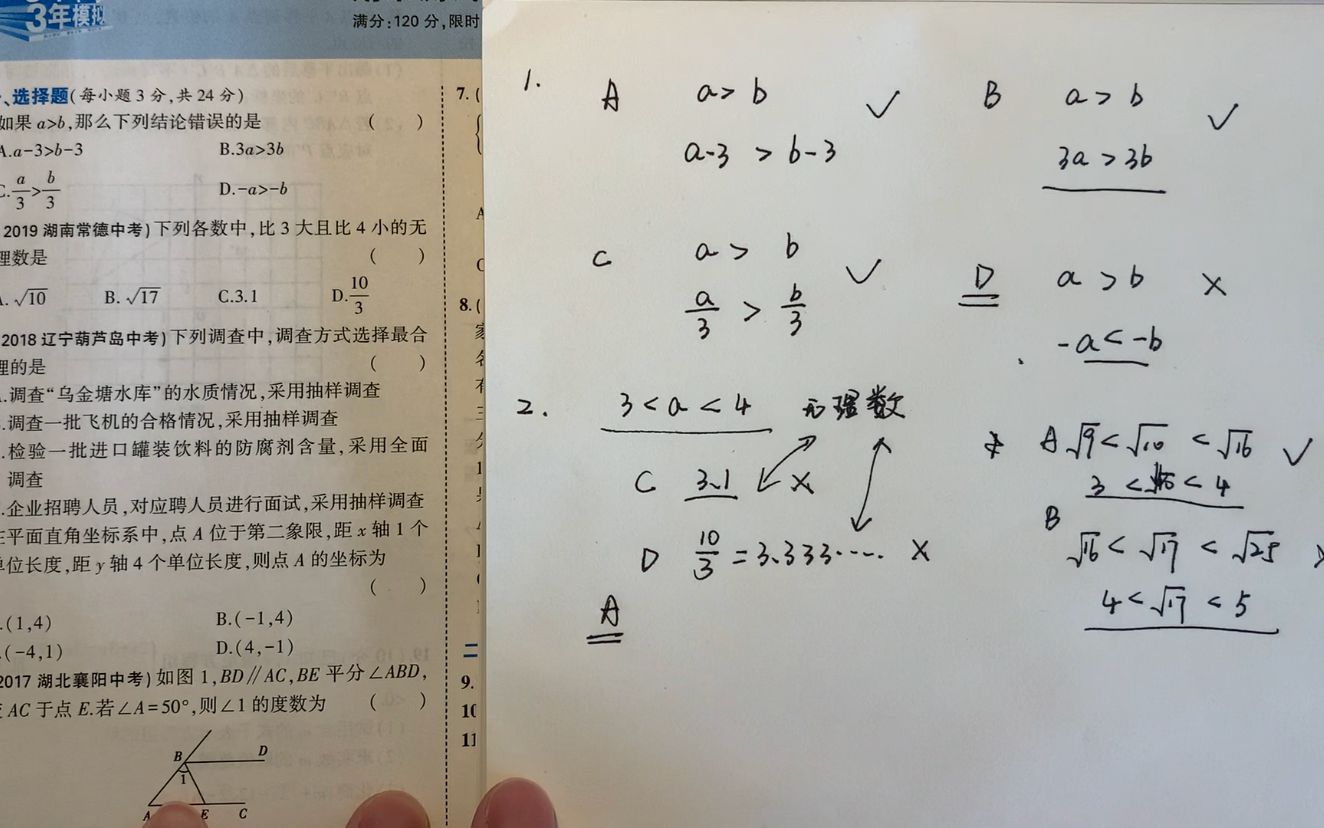 3年模拟
满分:120分,限时
、选择题(每小题3分,共24分)
如果a>b,那么下列结论错误的是 ( )
A.a-3>b-3 B.3a>3b
C.a/3>b/3 D.-a>-b
2019湖南常德中考)下列各数中,比3大且比4小的无
理数是 ( )
A.√10 B.√17 C.3.1 D.10/3
2018辽宁葫芦岛中考)下列调查中,调查方式选择最合
理的是 ( )
.调查“乌金塘水库”的水质情况,采用抽样调查
.调查一批飞机的合格情况,采用抽样调查
.检验一批进口罐装饮料的防腐剂含量,采用全面
调查
.企业招聘人员,对应聘人员进行面试,采用抽样调查
在平面直角坐标系中,点A位于第二象限,距x轴1个
单位长度,距y轴4个单位长度,则点A的坐标为
( )
.(1,4) B.(-1,4)
.(-4,1) D.(4,-1)
2017湖北襄阳中考)如图1,BD∥AC,BE平分∠ABD,
交AC于点E.若∠A=50°,则∠1的度数为 ( )
B D
1
A E C
7.(
A
C
8.(
家
名
有
三
二
9.
10
11
1. A a>b ✓ B a>b ✓
a-3>b-3 3a>3b
C a>b ✓ D a>b ×
a/3>b/3 -a<-b
2. 3<a<4 无理数
C 3.1 ×
D 10/3=3.333···. ×
A
A √9<√10<√16 ✓
3<√10<4
B
√16<√17<√25
4<√17<5